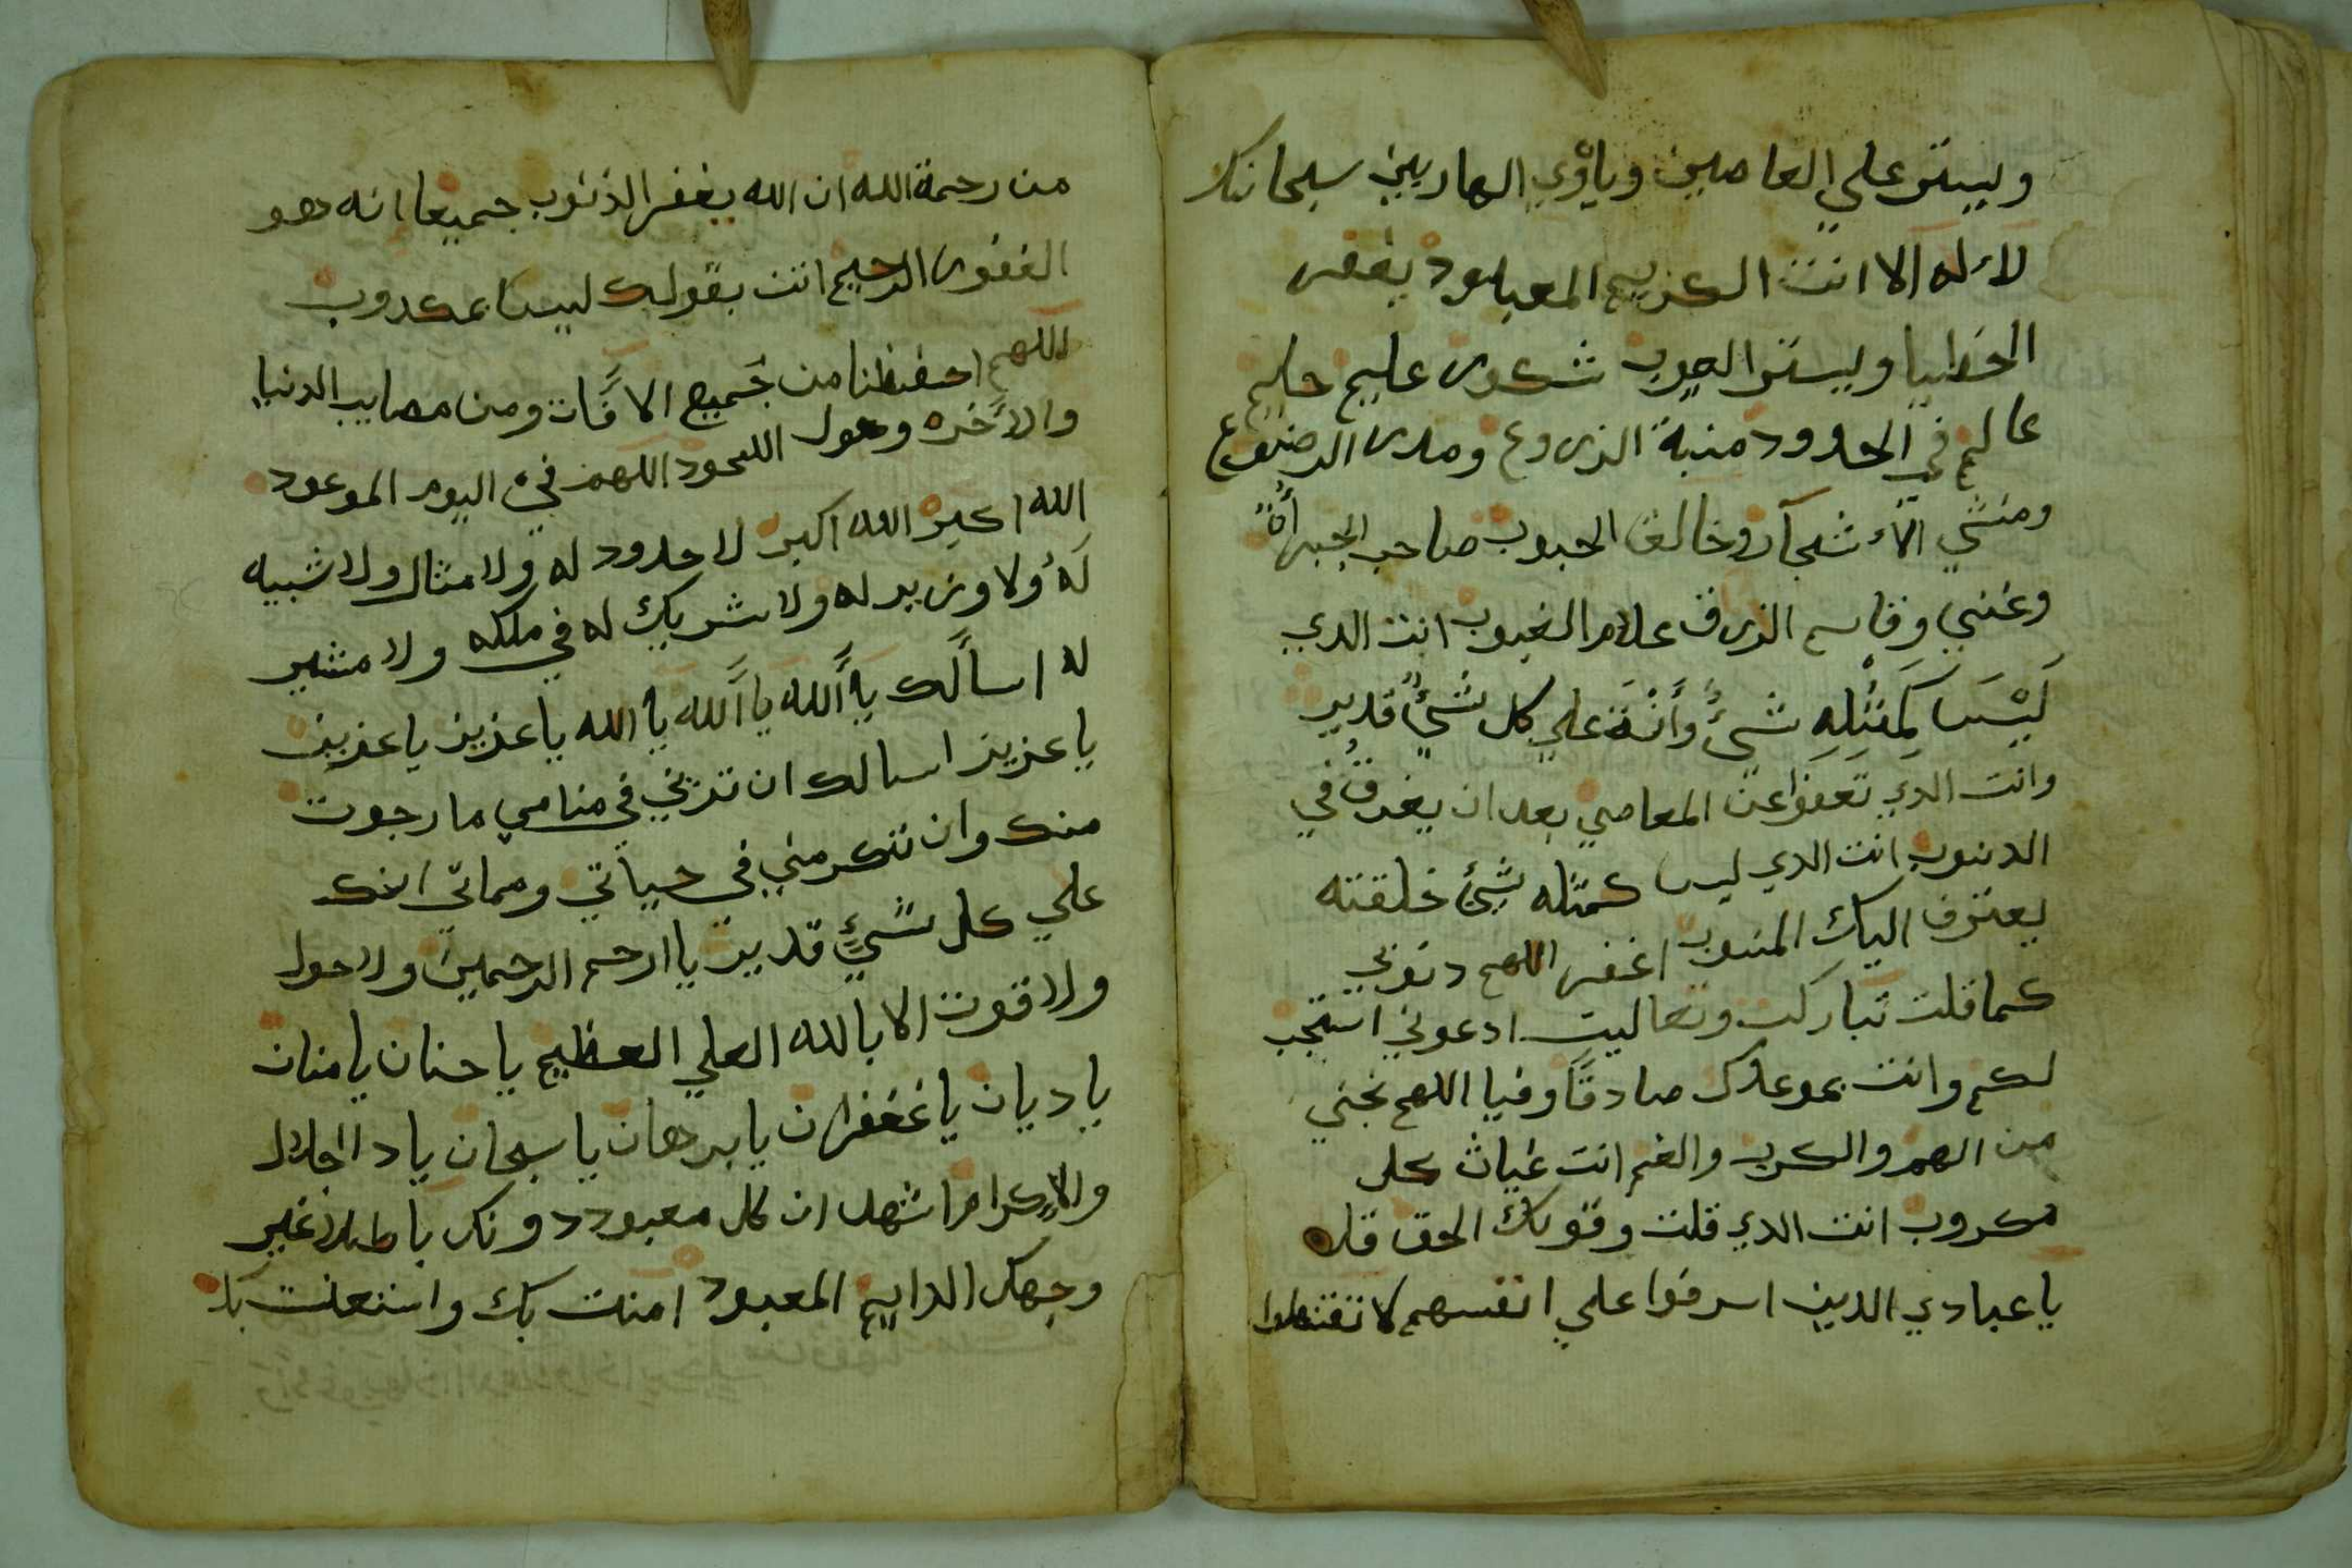 ويستر علي العاصين وياوي الهاربين سبحانك
لا اله الا انت الكريم المعبود يغفر
الخطايا ويستر العيوب شكور عليم حليم
عالم في الحدود منبة الزروع ومدر الرضوع
ومنشي الاشجار وخالق الحبوب صاحب الجبراة
وغني وقاسم الرزق علام الغيوب انت الدي
لَيْسَ كَمِثْلِهِ شيءٌ وَأَنْتَ علي كل شيءٍ قدير
وانت الدي تعفوا عن المعاصي بعد ان يغرق في
الدنوب انت الدي ليس كمثله شيء خلقته
يعترف اليك المنسوب اغفر اللهم دنوبي
كما قلت تباركت وتعاليت ادعوني استجب
لكم وانت بموعدك صادقاً وفيا اللهم نجني
من الهم والكرب والغم انت غياث كل
مكروب انت الدي قلت وقولك الحق قل
يا عبادي الدين اسرفوا علي انفسهم لا تقنطوا
من رحمة الله ان الله يغفر الذنوب جميعا انه هو
الغفور الرحيم انت بقولك ليس بمكدوب
اللهم احفظنا من جميع الافات ومن مصايب الدنيا
والاخره وهول اللحود اللهم في اليوم الموعود
الله اكبر الله اكبر لا حدود له ولا مثال ولا شبيه
لَهُ ولا وزير له ولا شريك له في ملكه ولا مشير
له اسالك يا الله يا الله يا الله يا عزيز يا عزيز
يا عزيز اسالك ان تريني في منامي ما رجوت
منك وان تكرمني في حياتي ومماتي انك
علي كل شيءٍ قدير يا ارحم الرحمين ولا حول
ولا قوت الا بالله العلي العظيم يا حنان يا منان
يا ديان يا غفران يا برهان يا سبحان يا دا الجلال
والاكرام اشهد ان كل معبود دونك باطلا غير
وجهك الدايم المعبود امنت بك واستعنت بك